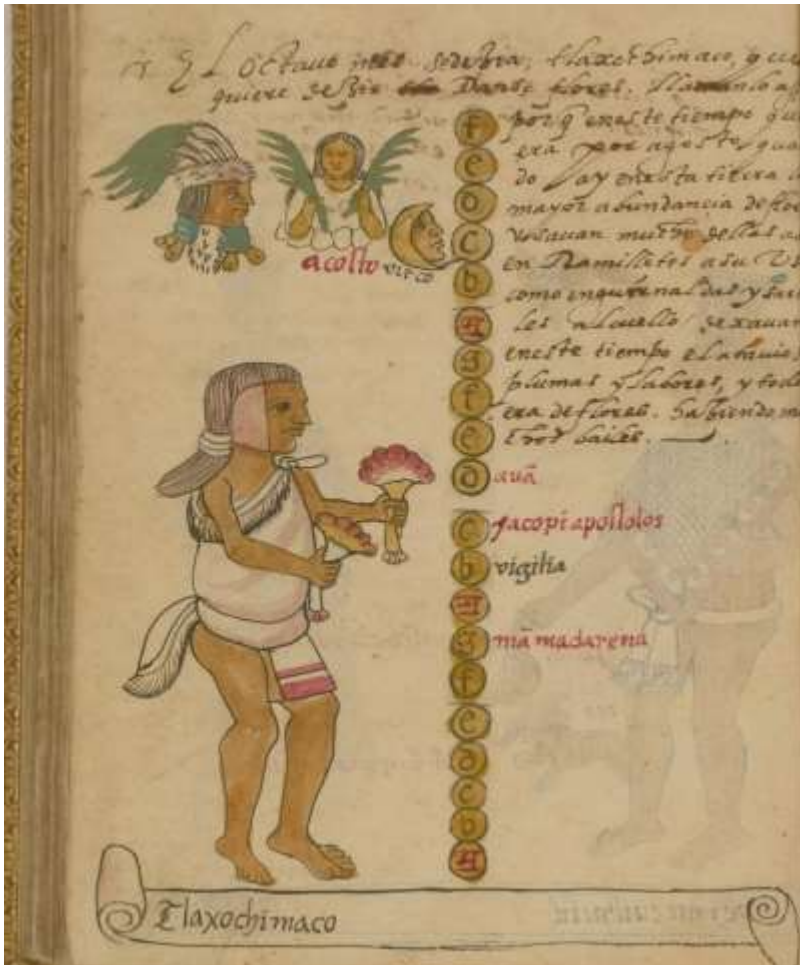 El octauo mes se dezia, tlaxochimaco, que
quiere dezir Danse flores. llamanlo a
por q̃ eneste tiempo que
era por agosto, quan
do ay enesta tierra la
mayor abundancia de flo
Vsauan mucho dellas a
en Ramilletes a su Vs
como enguirnaldas y sar
les al cuello dexauan
eneste tiempo el atauio,
plumas y labores, y todo
era de flores. habiendo, m
bailes.
acosto
virco
f
e
d
c
b
A
g
f
e
d
c Jacopi apostolos
b vigilia
A
g mã madarena
f
e
d
c
b
A
Tlaxochimaco